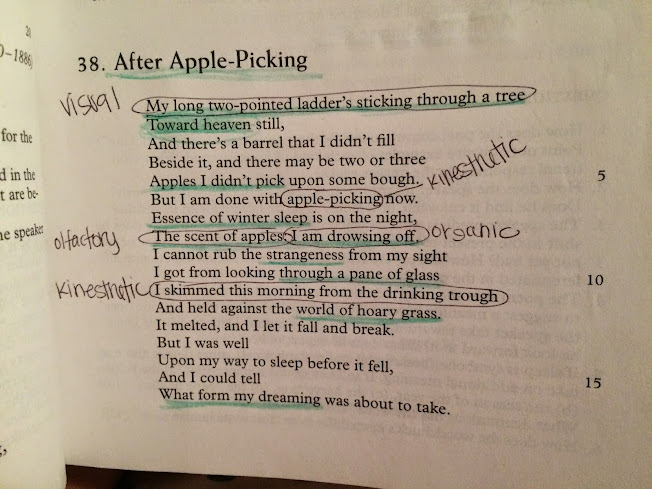 2)
0–1886)
for the
d in the
t are be-
he speaker
38. After Apple-Picking
visual
My long two-pointed ladder's sticking through a tree
Toward heaven still,
And there's a barrel that I didn't fill
Beside it, and there may be two or three
Apples I didn't pick upon some bough. kinesthetic 5
But I am done with apple-picking now.
Essence of winter sleep is on the night,
olfactory The scent of apples: I am drowsing off. organic
I cannot rub the strangeness from my sight
I got from looking through a pane of glass 10
kinesthetic I skimmed this morning from the drinking trough
And held against the world of hoary grass.
It melted, and I let it fall and break.
But I was well
Upon my way to sleep before it fell,
And I could tell 15
What form my dreaming was about to take.